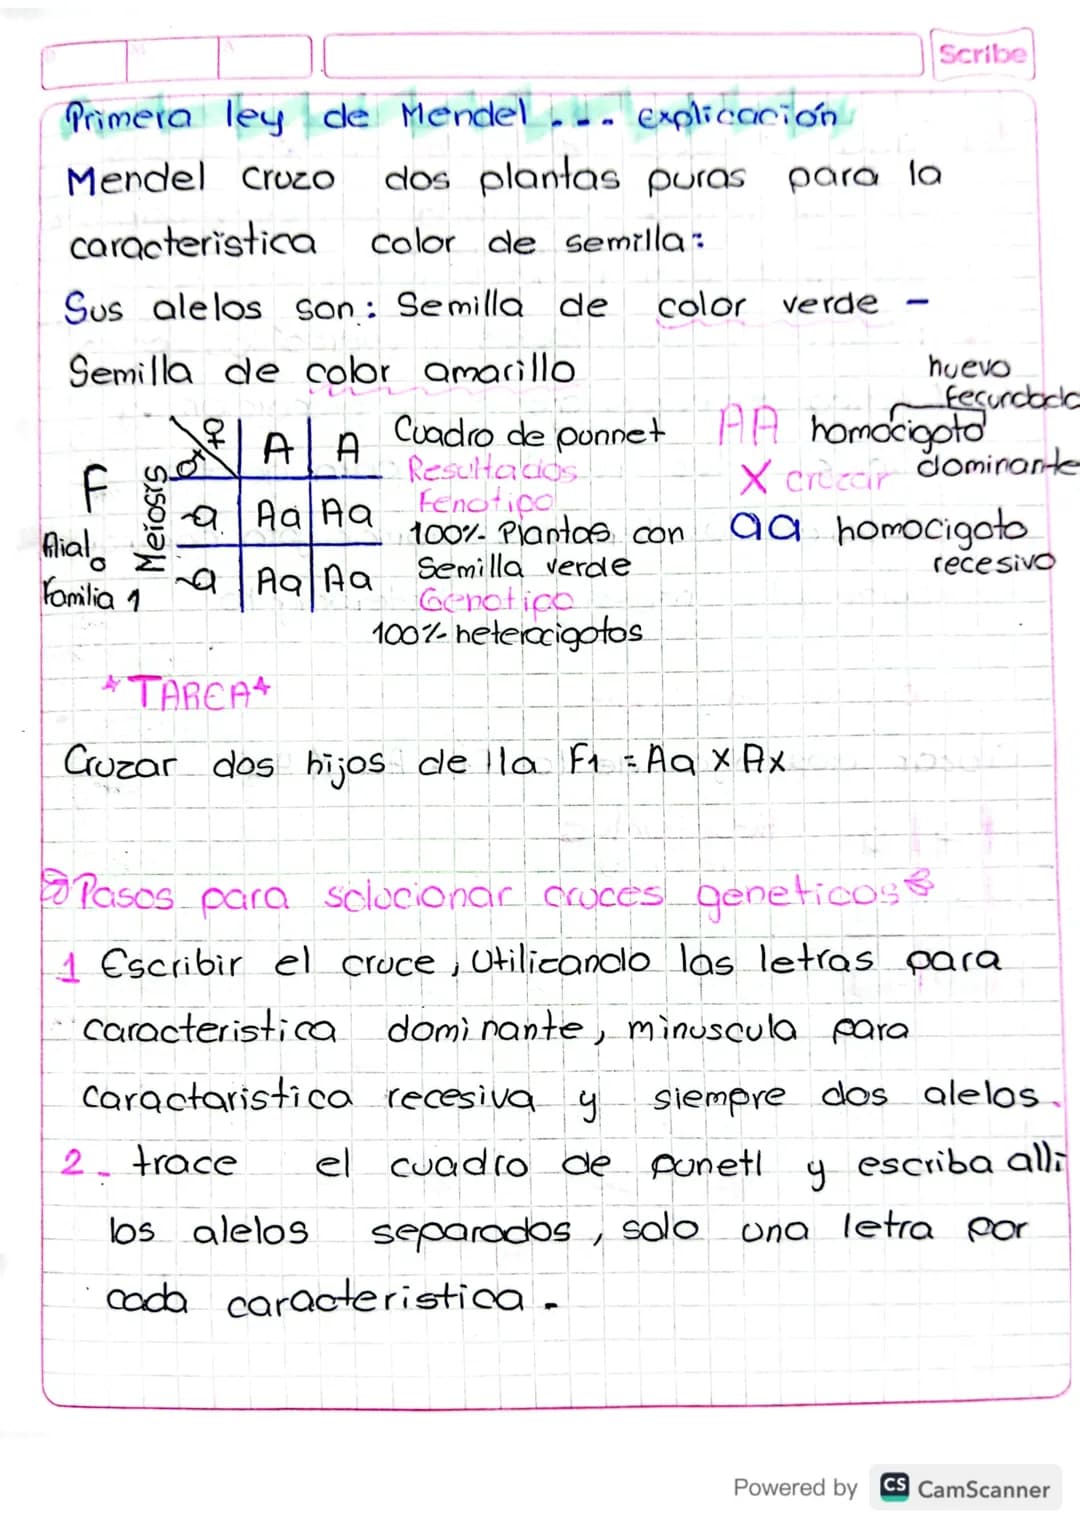 Scribe
Primera ley de Mendel . - . explicación
Mendel cruzo dos plantas puras para la
caracteristica color de semilla:
Sus alelos son: Semilla de color verde -
Semilla de color amarillo
♂ ♀ A A
a Aa Aa
a Aa Aa
Meiosis
F
filial o
familia 1
Cuadro de punnet
Resultados
Fenotipo
100% Plantas con
Semilla verde
Genotipo
100% heterocigotos
huevo
fecundado
AA homocigoto
dominante
X cruzar
aa homocigoto
recesivo
*TAREA*
Cruzar dos hijos de lla F1 = Aa x Ax
Pasos para solucionar cruces geneticos
1 Escribir el cruce, Utilizando las letras para
caracteristica dominante, minuscula para
caractaristica recesiva y siempre dos alelos.
2- trace el cuadro de punetl y escriba alli
los alelos separados, solo una letra por
cada caracteristica.
Powered by CS CamScanner